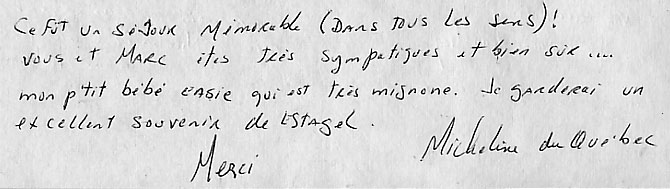 Ce fut un séjour mémorable (dans tous les sens)!
vous et Marc êtes très sympatiques et bien sûr....
mon p'tit bébé qui est très mignone. Je garderai un
excellent souvenir de Estagel.
Micheline du Québec
Merci